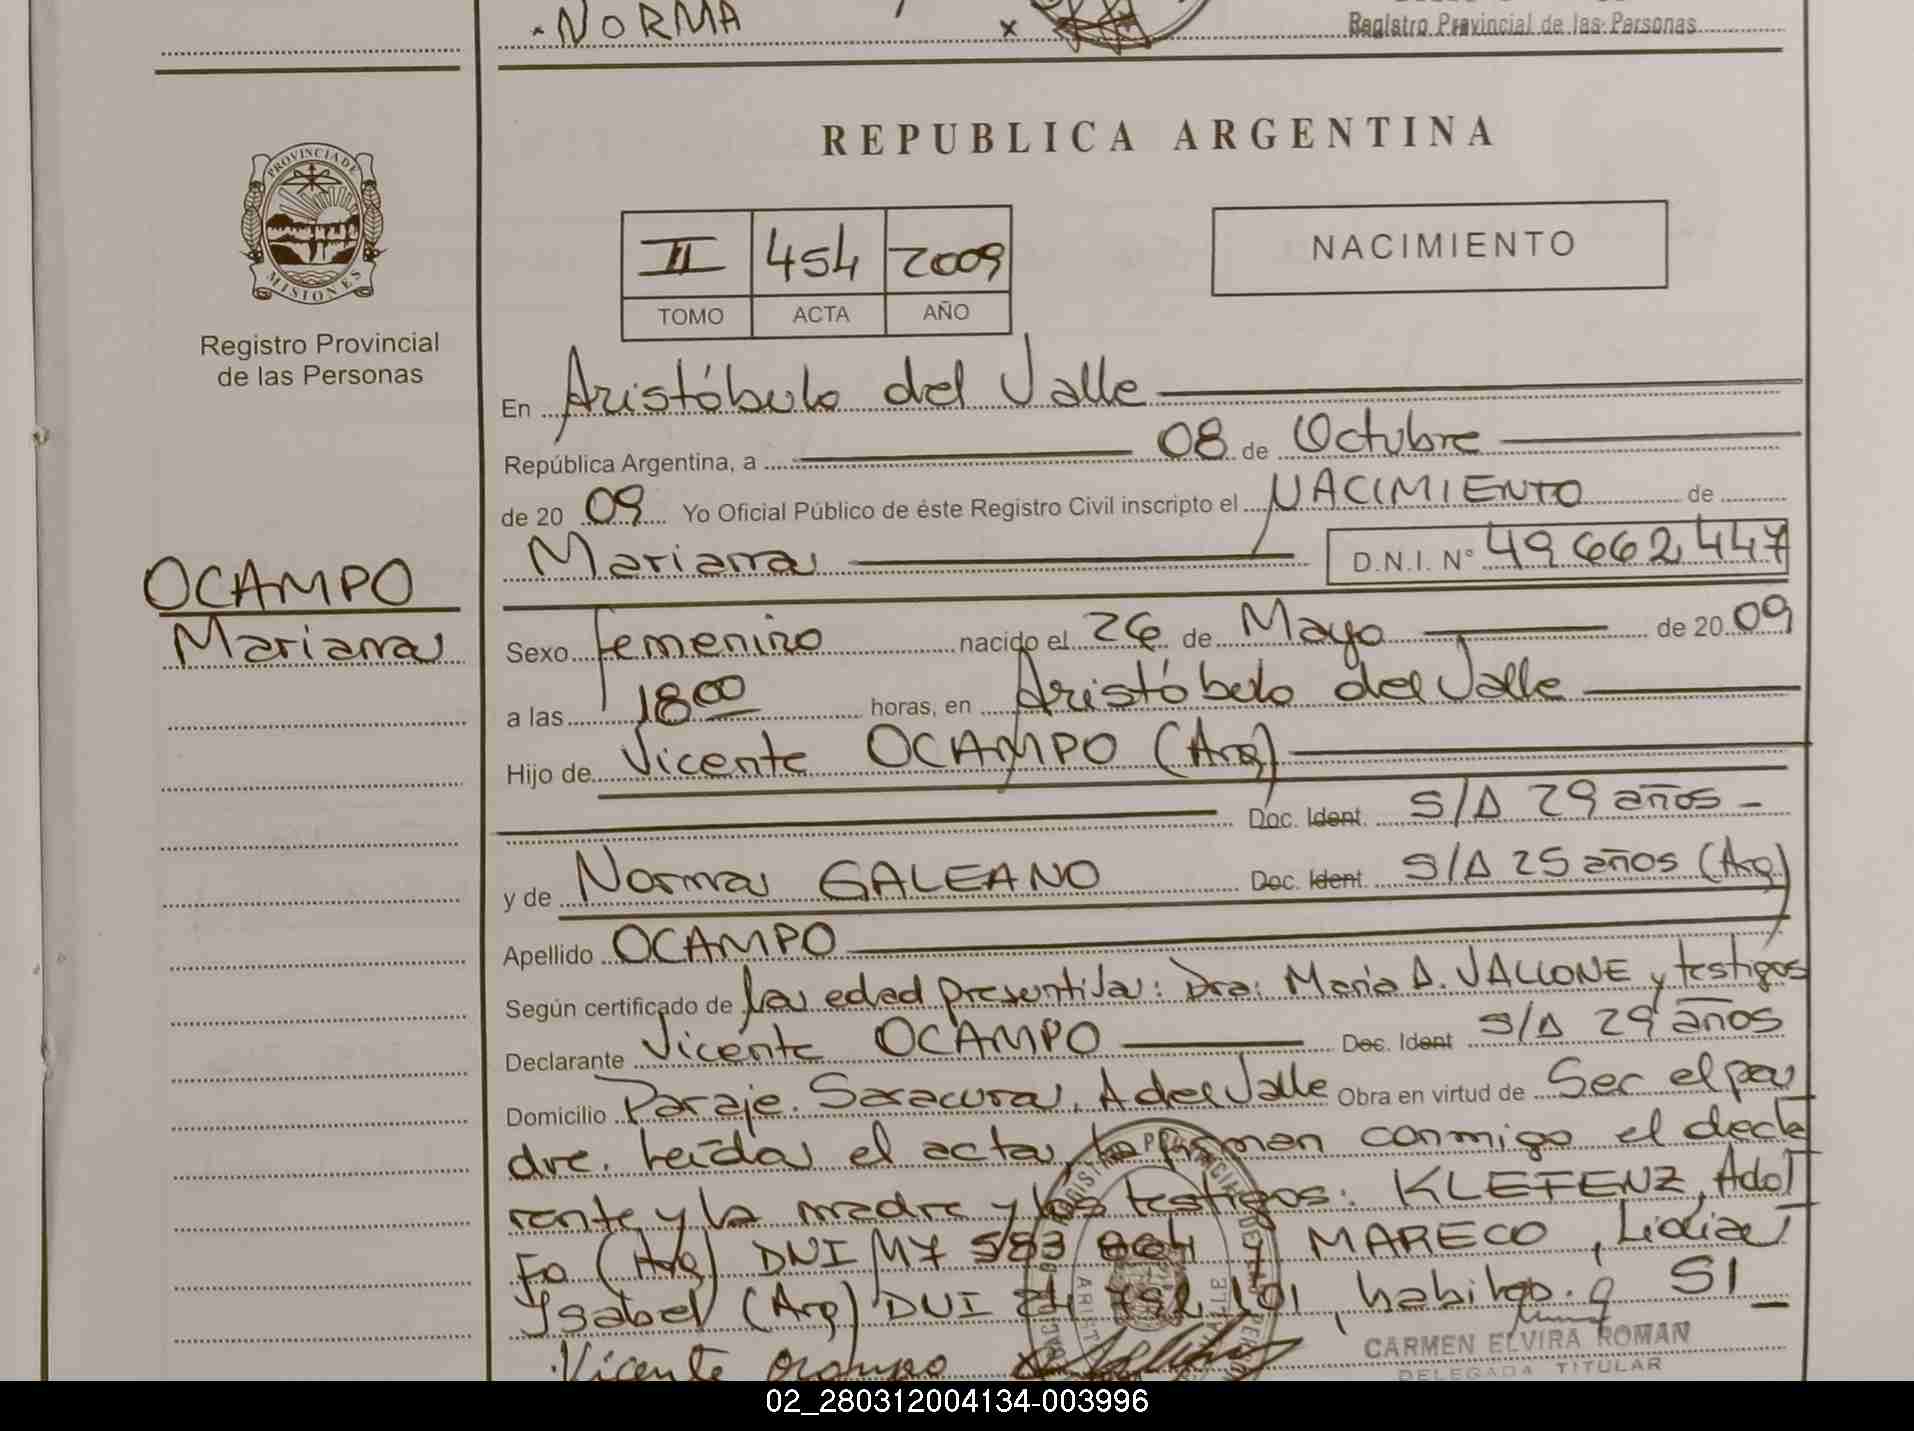 NORMA
x
Registro Provincial de las Personas
PROVINCIA DE
MISIONES
Registro Provincial
de las Personas
OCAMPO
Mariana
REPUBLICA ARGENTINA
II 454 2009
TOMO ACTA AÑO
NACIMIENTO
En Aristóbulo del Valle
República Argentina, a 08 de Octubre
de 20 09 Yo Oficial Público de éste Registro Civil inscripto el NACIMIENTO de
Mariana D.N.I. N° 49 662 447
Sexo Femenino nacido el 26 de Mayo de 20 09
a las 18 00 horas, en Aristóbulo del Valle
Hijo de Vicente OCAMPO (Arg)
Doc. Ident. S/D 29 años
y de Norma GALEANO Doc. Ident. S/D 25 años (Arg)
Apellido OCAMPO
Según certificado de la edad presuntiva: Dra: María D. VALLONE y testigos
Declarante Vicente OCAMPO Doc. Ident S/D 29 años
Domicilio Paraje. Saracura, A del Valle Obra en virtud de Ser el pa
dre. Leída el acta, la firman conmigo el decla
rante y la madre y los testigos: KLEFENZ, Adol
Fo (Arg) DNI M7 583 664 y MARECO, Lidia
Ysabel (Arg) DNI 24 752 101, habitgo. q SI
Vicente ocampo
CARMEN ELVIRA ROMAN
DELEGADA TITULAR
02_280312004134-003996